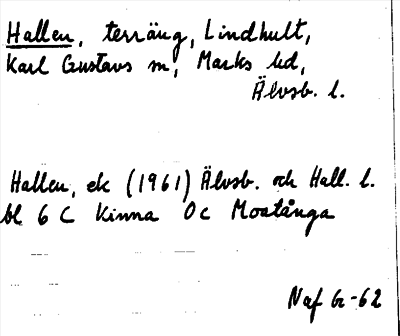 Hallen, terräng, Lindhult,
Karl Gustavs sn, Marks hd,
Älvsb. l.
Hallen, ek (1961) Älvsb. och Hall. l.
bl 6 C Kinna 0 c Moatånga
Naf Gr-62